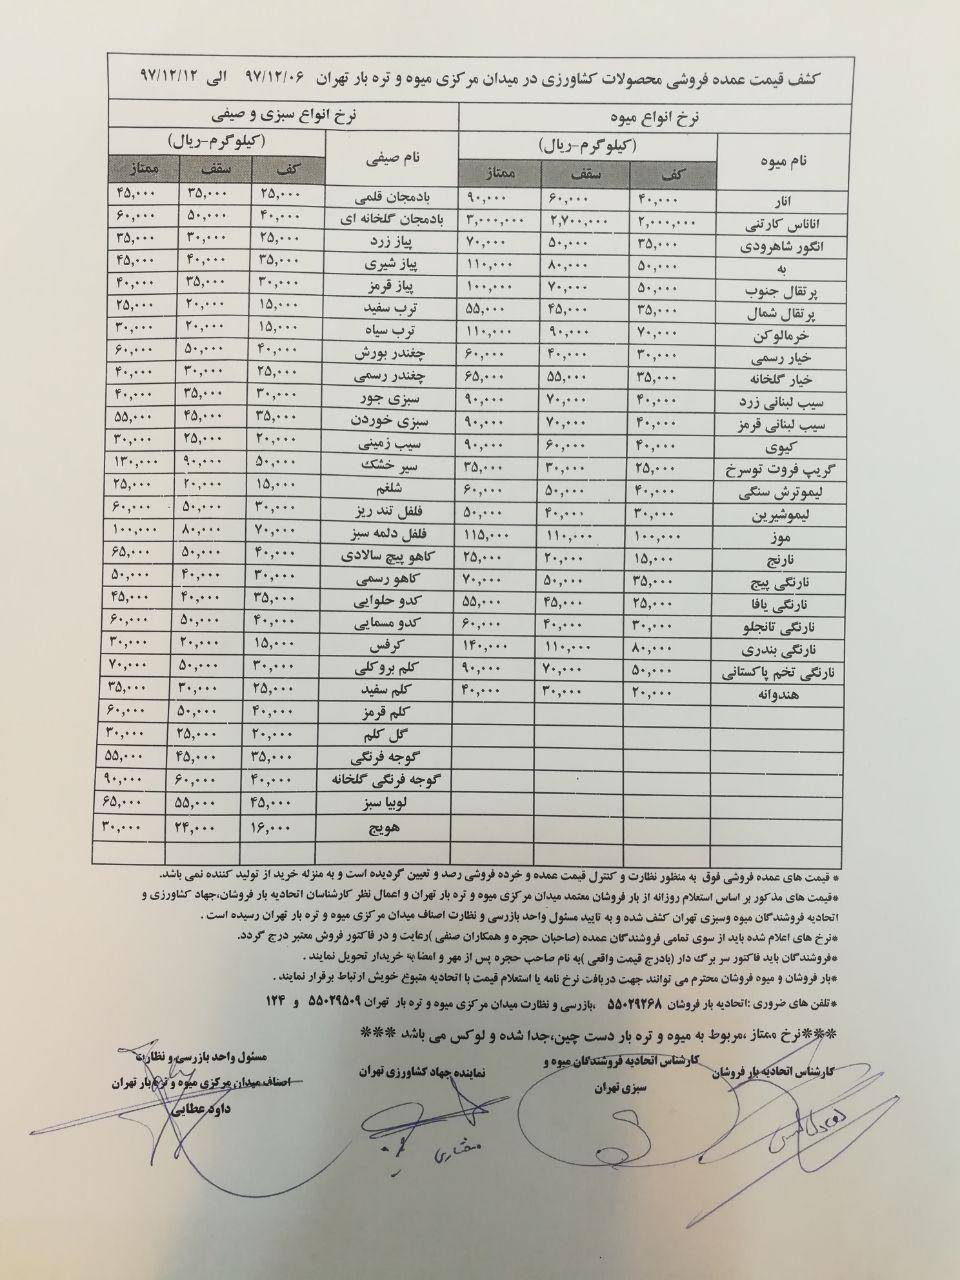 کشف قیمت عمده فروشی محصولات کشاورزی در میدان مرکزی میوه و تره بار تهران ۹۷/۱۲/۰۶ الی ۹۷/۱۲/۱۲
نرخ انواع میوه
نام میوه (کیلوگرم-ریال)
کف سقف ممتاز
انار ۴۰,۰۰۰ ۶۰,۰۰۰ ۹۰,۰۰۰
اناناس کارتنی ۲,۰۰۰,۰۰۰ ۲,۷۰۰,۰۰۰ ۳,۰۰۰,۰۰۰
انگور شاهرودی ۳۵,۰۰۰ ۵۰,۰۰۰ ۷۰,۰۰۰
به ۵۰,۰۰۰ ۸۰,۰۰۰ ۱۱۰,۰۰۰
پرتقال جنوب ۵۰,۰۰۰ ۷۰,۰۰۰ ۱۰۰,۰۰۰
پرتقال شمال ۳۵,۰۰۰ ۴۵,۰۰۰ ۵۵,۰۰۰
خرمالوکن ۷۰,۰۰۰ ۹۰,۰۰۰ ۱۱۰,۰۰۰
خیار رسمی ۳۰,۰۰۰ ۴۰,۰۰۰ ۶۰,۰۰۰
خیار گلخانه ۳۵,۰۰۰ ۵۵,۰۰۰ ۶۵,۰۰۰
سیب لبنانی زرد ۴۰,۰۰۰ ۷۰,۰۰۰ ۹۰,۰۰۰
سیب لبنانی قرمز ۴۰,۰۰۰ ۷۰,۰۰۰ ۹۰,۰۰۰
کیوی ۴۰,۰۰۰ ۶۰,۰۰۰ ۹۰,۰۰۰
گریپ فروت توسرخ ۲۵,۰۰۰ ۳۰,۰۰۰ ۳۵,۰۰۰
لیموترش سنگی ۴۰,۰۰۰ ۵۰,۰۰۰ ۶۰,۰۰۰
لیموشیرین ۳۰,۰۰۰ ۴۰,۰۰۰ ۵۰,۰۰۰
موز ۱۰۰,۰۰۰ ۱۱۰,۰۰۰ ۱۱۵,۰۰۰
نارنج ۱۵,۰۰۰ ۲۰,۰۰۰ ۲۵,۰۰۰
نارنگی پیج ۳۵,۰۰۰ ۵۰,۰۰۰ ۷۰,۰۰۰
نارنگی یافا ۲۵,۰۰۰ ۴۵,۰۰۰ ۵۵,۰۰۰
نارنگی تانجلو ۳۰,۰۰۰ ۴۰,۰۰۰ ۶۰,۰۰۰
نارنگی بندری ۸۰,۰۰۰ ۱۱۰,۰۰۰ ۱۴۰,۰۰۰
نارنگی تخم پاکستانی ۵۰,۰۰۰ ۷۰,۰۰۰ ۹۰,۰۰۰
هندوانه ۲۰,۰۰۰ ۳۰,۰۰۰ ۴۰,۰۰۰
نرخ انواع سبزی و صیفی
نام صیفی (کیلوگرم-ریال)
کف سقف ممتاز
بادمجان قلمی ۲۵,۰۰۰ ۳۵,۰۰۰ ۴۵,۰۰۰
بادمجان گلخانه ای ۴۰,۰۰۰ ۵۰,۰۰۰ ۶۰,۰۰۰
پیاز زرد ۲۵,۰۰۰ ۳۰,۰۰۰ ۳۵,۰۰۰
پیاز شیری ۳۵,۰۰۰ ۴۰,۰۰۰ ۴۵,۰۰۰
پیاز قرمز ۳۰,۰۰۰ ۳۵,۰۰۰ ۴۰,۰۰۰
ترب سفید ۱۵,۰۰۰ ۲۰,۰۰۰ ۲۵,۰۰۰
ترب سیاه ۱۵,۰۰۰ ۲۰,۰۰۰ ۳۰,۰۰۰
چغندر بورش ۴۰,۰۰۰ ۵۰,۰۰۰ ۶۰,۰۰۰
چغندر رسمی ۲۵,۰۰۰ ۳۰,۰۰۰ ۴۰,۰۰۰
سبزی جور ۳۰,۰۰۰ ۳۵,۰۰۰ ۴۰,۰۰۰
سبزی خوردن ۳۵,۰۰۰ ۴۵,۰۰۰ ۵۵,۰۰۰
سیب زمینی ۲۰,۰۰۰ ۲۵,۰۰۰ ۳۰,۰۰۰
سیر خشک ۵۰,۰۰۰ ۹۰,۰۰۰ ۱۳۰,۰۰۰
شلغم ۱۵,۰۰۰ ۲۰,۰۰۰ ۲۵,۰۰۰
فلفل تند ریز ۳۰,۰۰۰ ۵۰,۰۰۰ ۶۰,۰۰۰
فلفل دلمه سبز ۷۰,۰۰۰ ۸۰,۰۰۰ ۱۰۰,۰۰۰
کاهو پیچ سالادی ۴۰,۰۰۰ ۵۰,۰۰۰ ۶۵,۰۰۰
کاهو رسمی ۳۰,۰۰۰ ۴۰,۰۰۰ ۵۰,۰۰۰
کدو حلوایی ۳۵,۰۰۰ ۴۰,۰۰۰ ۴۵,۰۰۰
کدو مسمایی ۴۰,۰۰۰ ۵۰,۰۰۰ ۶۰,۰۰۰
کرفس ۱۵,۰۰۰ ۲۰,۰۰۰ ۳۰,۰۰۰
کلم بروکلی ۳۰,۰۰۰ ۵۰,۰۰۰ ۷۰,۰۰۰
کلم سفید ۲۵,۰۰۰ ۳۰,۰۰۰ ۳۵,۰۰۰
کلم قرمز ۴۰,۰۰۰ ۵۰,۰۰۰ ۶۰,۰۰۰
گل کلم ۲۰,۰۰۰ ۲۵,۰۰۰ ۳۰,۰۰۰
گوجه فرنگی ۳۵,۰۰۰ ۴۵,۰۰۰ ۵۵,۰۰۰
گوجه فرنگی گلخانه ۴۰,۰۰۰ ۶۰,۰۰۰ ۹۰,۰۰۰
لوبیا سبز ۴۵,۰۰۰ ۵۵,۰۰۰ ۶۵,۰۰۰
هویج ۱۶,۰۰۰ ۲۴,۰۰۰ ۳۰,۰۰۰
* قیمت های عمده فروشی فوق به منظور نظارت و کنترل قیمت عمده و خرده فروشی رصد و تعیین گردیده است و به منزله خرید از تولید کننده نمی باشد.
*قیمت های مذکور بر اساس استعلام روزانه از بار فروشان معتمد میدان مرکزی میوه و تره بار تهران و اعمال نظر کارشناسان اتحادیه بار فروشان،جهاد کشاورزی و
اتحادیه فروشندگان میوه وسبزی تهران کشف شده و به تایید مسئول واحد بازرسی و نظارت اصناف میدان مرکزی میوه و تره بار تهران رسیده است .
*نرخ های اعلام شده باید از سوی تمامی فروشندگان عمده (صاحبان حجره و همکاران صنفی )رعایت و در فاکتور فروش معتبر درج گردد.
*فروشندگان باید فاکتور سر برگ دار (بادرج قیمت واقعی )به نام صاحب حجره پس از مهر و امضا به خریدار تحویل نمایند .
*بار فروشان و میوه فروشان محترم می توانند جهت دریافت نرخ نامه یا استعلام قیمت با اتحادیه متبوع خویش ارتباط برقرار نمایند .
*تلفن های ضروری :اتحادیه بار فروشان ۵۵۰۲۹۲۶۸ ،بازرسی و نظارت میدان مرکزی میوه و تره بار تهران ۵۵۰۲۹۵۰۹ و ۱۲۴
***نرخ ممتاز ،مربوط به میوه و تره بار دست چین،جدا شده و لوکس می باشد ***
کارشناس اتحادیه بار فروشان
کارشناس اتحادیه فروشندگان میوه و
سبزی تهران
نماینده جهاد کشاورزی تهران
مختاری
مسئول واحد بازرسی و نظارت
اصناف میدان مرکزی میوه و تره بار تهران
داود عطایی